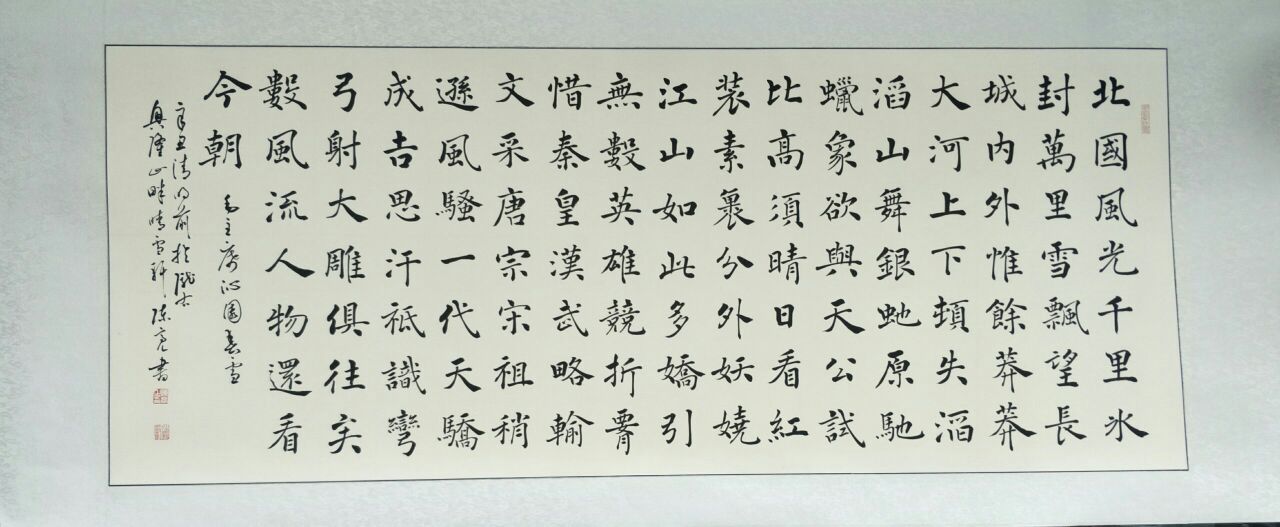 北國風光千里氷
封萬里雪飄望長
城内外惟餘莽莽
大河上下頓失滔
滔山舞銀虵原馳
蠟象欲與天公試
比高須晴日看紅
装素裹分外妖嬈
江山如此多嬌引
無數英雄競折腰
惜秦皇漢武略輸
文采唐宗宋祖稍
遜風騷一代天驕
成吉思汗祇識彎
弓射大雕俱往矣
數風流人物還看
今朝 毛主席沁園春雪
辛丑清明前於隴右
興隆山畔晴雪軒陳亮書